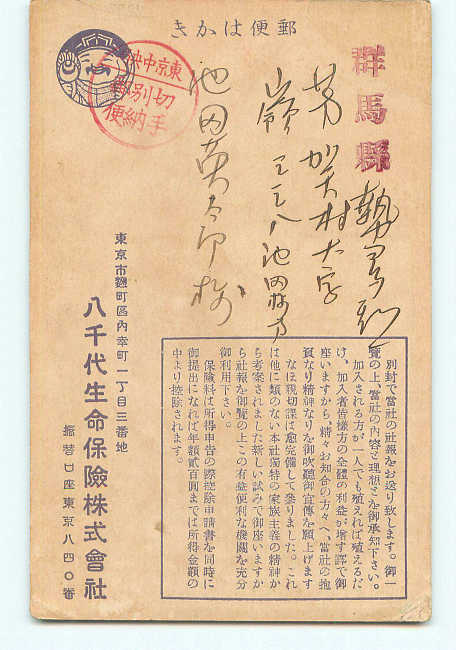 郵便はかき
東京中央
切手
別納
郵便
群馬縣勢多郡
芳賀村大字
嶺三三八池田
池田英太郎様
別封で當社の社報をお送り致します。御一
覽の上、當社の內容と理想とを御承知下さい。
加入される方が一人でも殖えれば殖えるだ
け、加入者皆樣方の全體の利益が增す譯で御
座いますから、精々お知合の方々へ、當社の抱
負なり精神なりを御吹聽御宣傳を願上げます
なほ親切課は愈完備して參りました。これ
は他に類のない本社獨特の家族主義の精神か
ら考案されました新しい試みで御座いますか
ら社報を御覽の上この有益便利な機關を充分
御利用下さい。
保險料は所得申告の際控除申請書を同時に
御提出になれば年額貳百圓までは所得金額の
中より控除されます。
東京市麴町區內幸町一丁目三番地
八千代生命保險株式會社
振替口座東京八四〇番